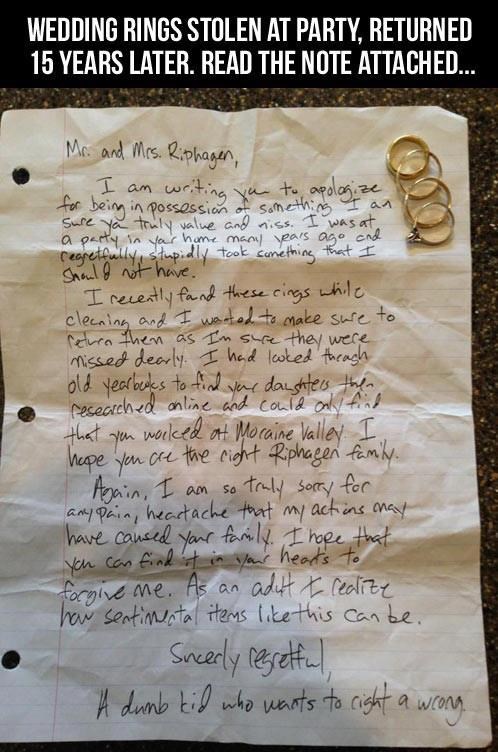 WEDDING RINGS STOLEN AT PARTY, RETURNED
15 YEARS LATER. READ THE NOTE ATTACHED...
Mr. and Mrs. Riphagen,
I am writing you to apologize
for being in possession of something I am
sure you truly value and miss. I was at
a party in your home many years ago and
regretfully, stupidly took something that I
should not have.
I recently found these rings while
cleaning and I wanted to make sure to
return them as I'm sure they were
missed dearly. I had looked through
old yearbooks to find your daughters then
researched online and could only find
that you worked at Moraine Valley. I
hope you are the right Riphagen family.
Again, I am so truly sorry for
any pain, heartache that my actions may
have caused your family. I hope that
you can find it in your hearts to
forgive me. As an adult I realize
how sentimental items like this can be.
Sincerly regretful,
A dumb kid who wants to right a wrong.